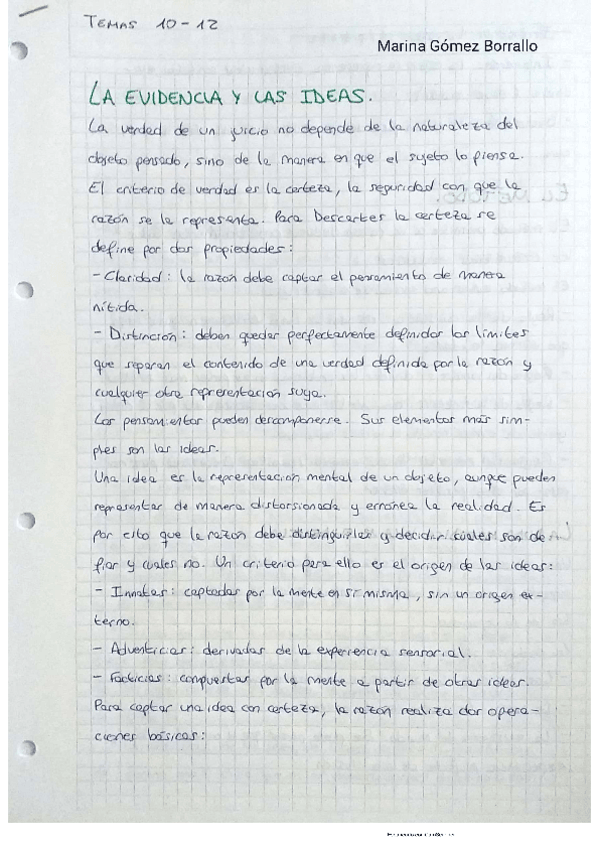 TEMAS 10-12
Marina Gómez Borrallo
LA EVIDENCIA Y LAS IDEAS.
La verdad de un juicio no depende de la naturaleza del
objeto pensado, sino de la manera en que el sujeto lo piensa.
El criterio de verdad es la certeza, la seguridad con que la
razón se la representa. Para Descartes la certeza se
define por dos propiedades:
- Claridad: la razón debe captar el pensamiento de manera
nítida.
- Distinción: deben quedar perfectamente definidos los límites
que separan el contenido de una verdad definida por la razón y
cualquier otra representación suya.
Los pensamientos pueden descomponerse. Sus elementos más sim-
ples son las ideas.
Una idea es la representación mental de un objeto, aunque pueden
representar de manera distorsionada y errónea la realidad. Es
por esto que la razón debe distinguirlas y decidir cuales son de
fiar y cuales no. Un criterio para ello es el origen de las ideas:
- Innatas: captadas por la mente en sí misma, sin un origen ex-
terno.
- Adventicias: derivadas de la experiencia sensorial.
- Facticias: compuestas por la mente a partir de otras ideas.
Para captar una idea con certeza, la razón realiza dos opera-
ciones básicas: